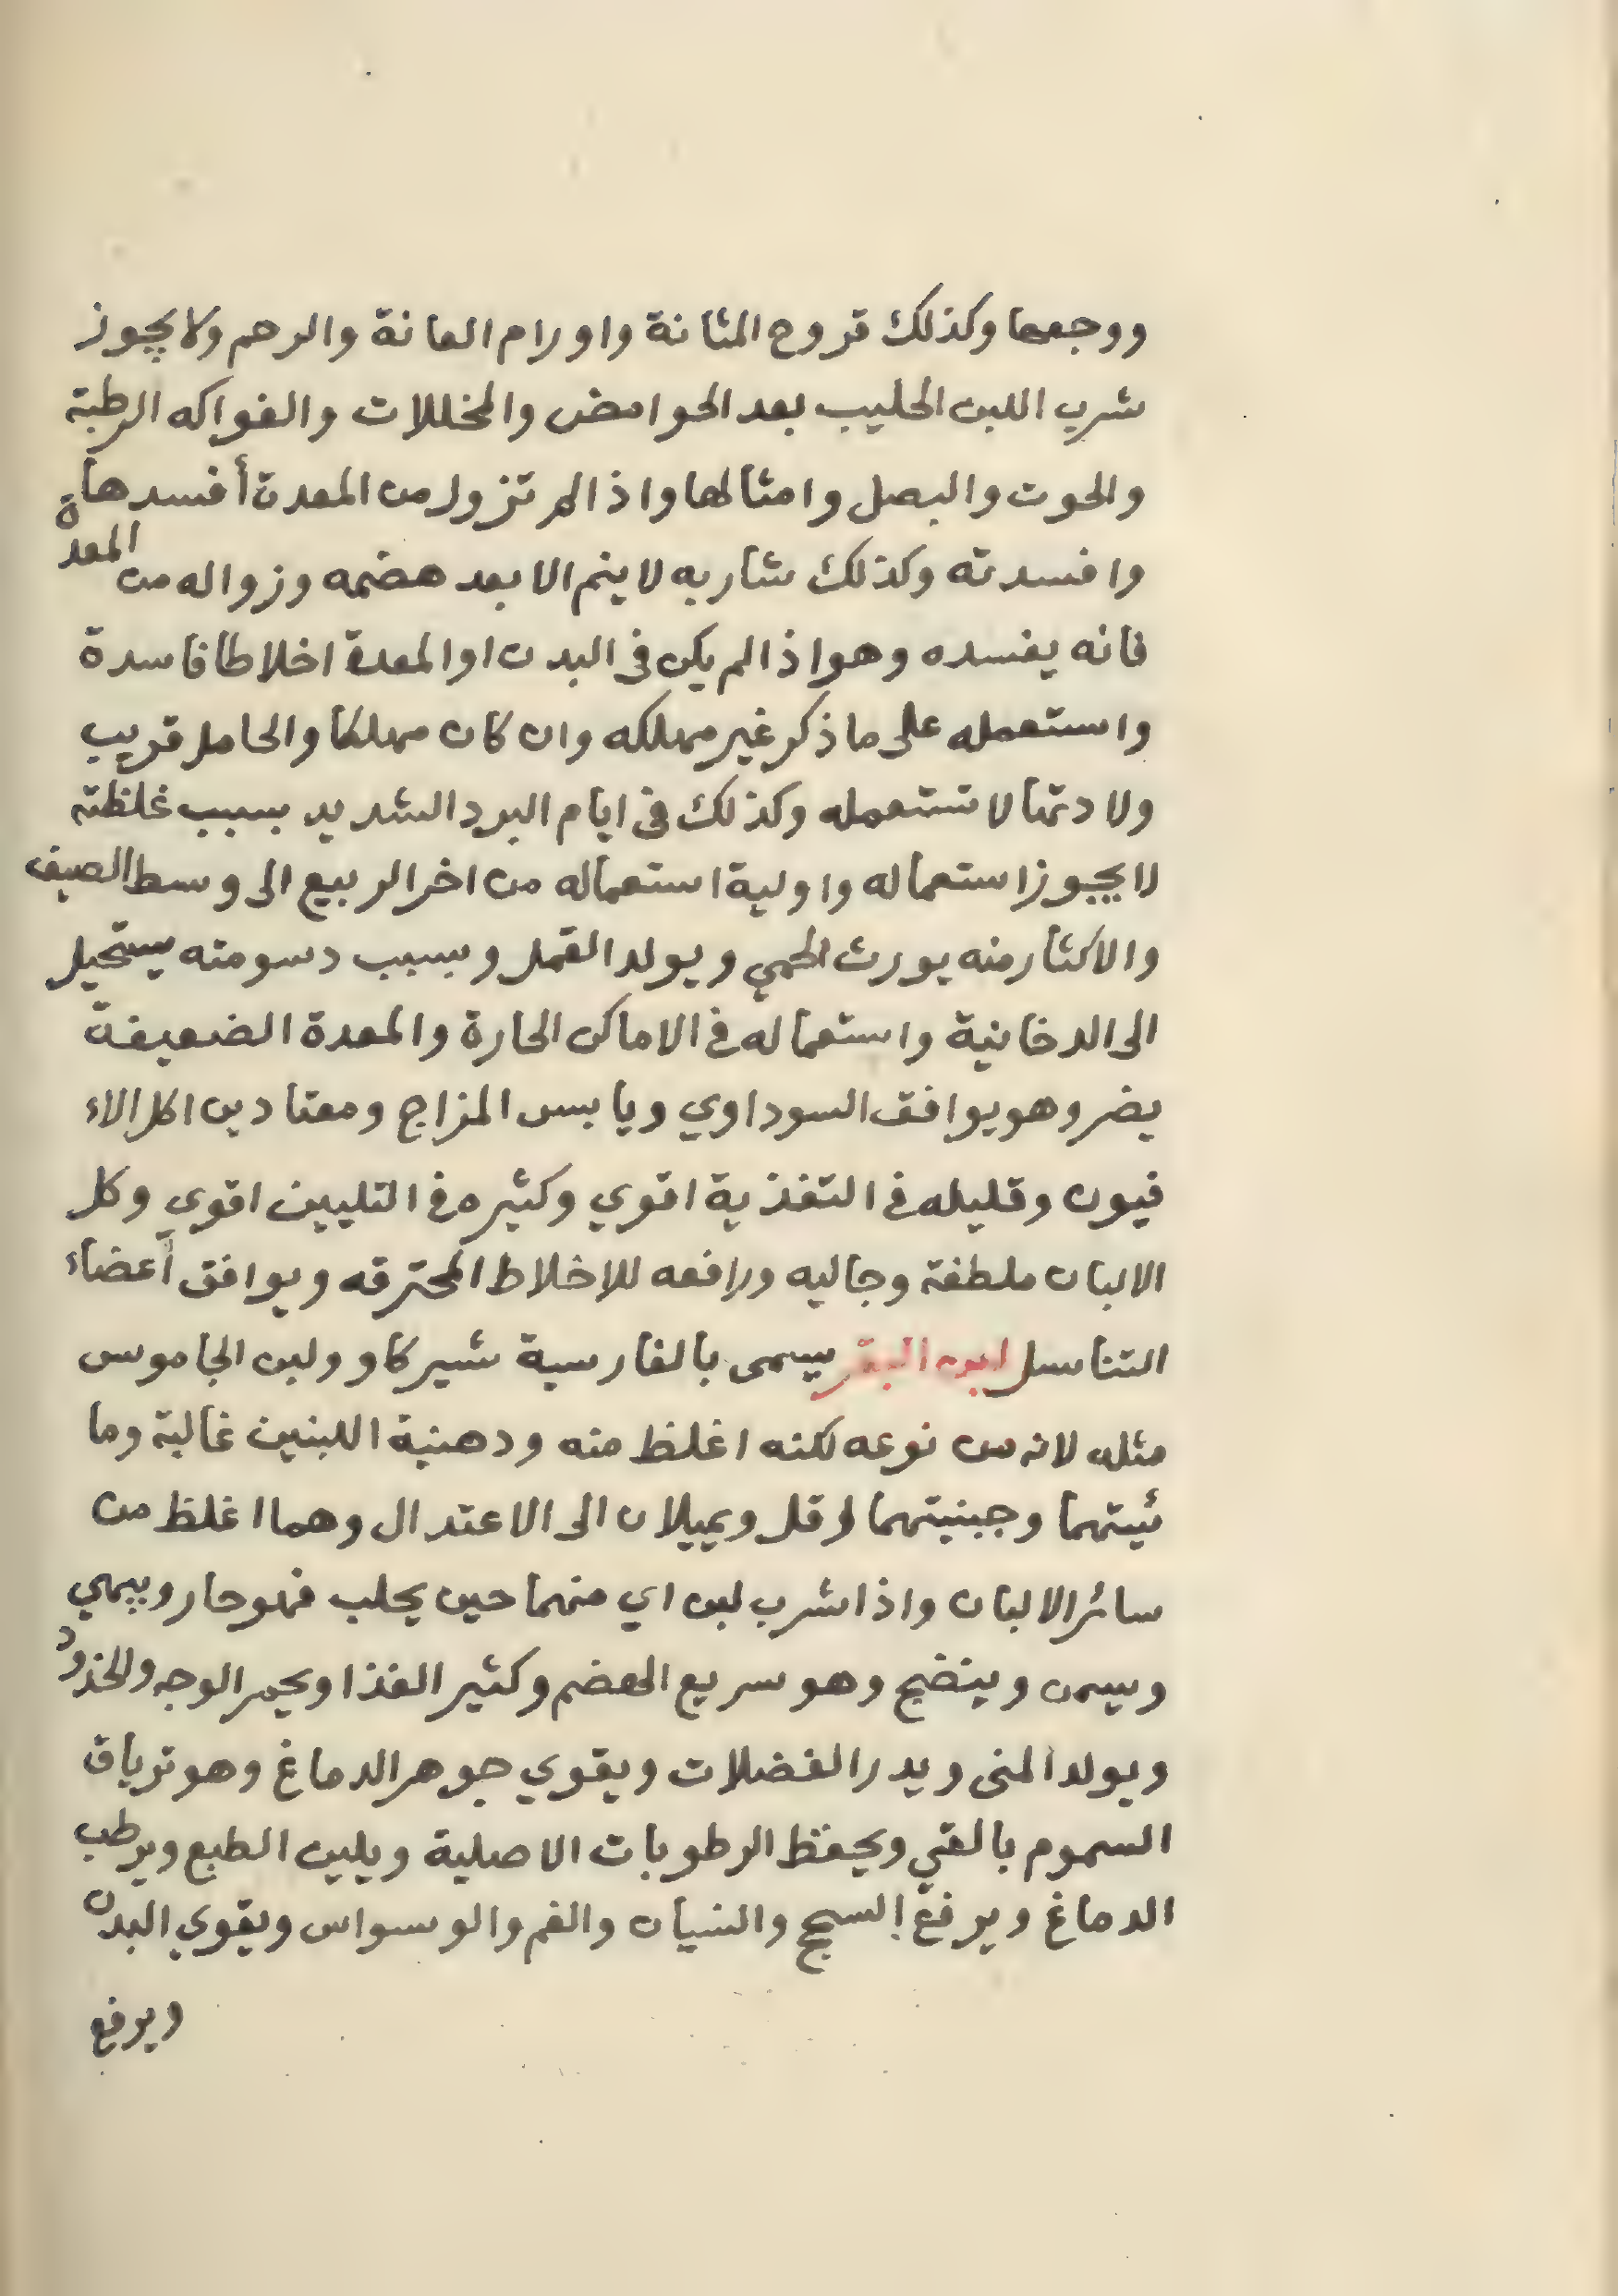 ووجعها وكذلك قروح المثانة واورام العانة والرحم ولا يجوز
شرب اللبن الحليب بعد الحوامض والمخللات والفواكه الرطبة
والحوت والبصل وامثالها واذا لم تزول من المعدة أفسدها
وافسدته وكذلك شاربه لا ينم الا بعد هضمه وزواله من المعدة
فانه يفسده وهو اذا لم يكن في البدن او المعدة اخلاطا فاسدة
واستعمله على ما ذكر غير مهلكه وان كان مهلكا والحامل قريب
ولادتها لا تستعمله وكذلك في ايام البرد الشديد بسبب غلظته
لا يجوز استعماله واولية استعماله من اخر الربيع الى وسط الصيف
والاكثار منه يورث الحمي ويولد القمل وبسبب دسومته يستحيل
الى الدخانية واستعماله في الاماكن الحارة والمعدة الضعيفة
يضر وهو يوافق السوداوي ويابس المزاج ومعتادين اكل الاء
فيون وقليله في التغذية اقوي وكثيره في التليين اقوي وكل
الالبان ملطفة وجاليه ورافعه للاخلاط المحترقه ويوافق أعضاء
التناسل لبن البقر يسمى بالفارسية شير كاو ولبن الجاموس
مثله لانه من نوعه لكنه اغلظ منه ودهنية اللبنين غالبة وما
ئيتهما وجبنيتهما اقل ويميلان الى الاعتدال وهما اغلظ من
سائر الالبان واذا شرب لبن اي منهما حين يحلب فهو حار ويبهي
ويسمن وينضج وهو سريع الهضم وكثير الغذا ويحمر الوجه والخدود
ويولد المنى ويدر الفضلات ويقوي جوهر الدماغ وهو ترياق
السموم بالقي ويحفظ الرطوبات الاصلية ويلين الطبع ويرطب
الدماغ ويرفع السحج والنسيان والغم والوسواس ويقوي البدن
ويرفع